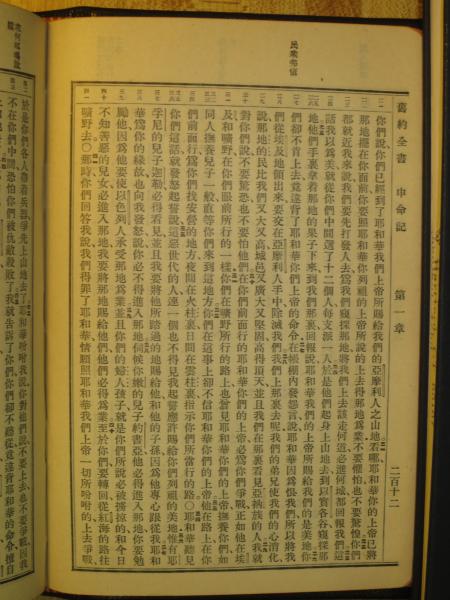 民衆弗信
舊約全書 申命記 第一章 二百十二
你們說你們已經到了耶和華我們上帝所賜給我們的亞摩利人之山地看哪耶和華你的上帝已將
那地擺在你面前你要照耶和華你列祖的上帝所說的上去得那地為業不要懼怕也不要驚惶你們
都就近我來說我們要先打發人去為我們窺探那地將我們上去該走何道必進何城都回報我們這
話我以為美就從你們中間選了十二個人每支派一人於是他們起身上山地去到以實各谷窺探那
地他們手裏拿着那地的果子下來到我們那裏回報說耶和華我們的上帝所賜給我們的是美地你
們卻不肯上去竟違背了耶和華你們上帝的命令在帳棚內發怨言說耶和華因為恨我們所以將我
們從埃及地領出來要交在亞摩利人手中除滅我們我們上那裏去呢我們的弟兄使我們的心消化
說那地的民比我們又大又高城邑又廣大又堅固高得頂天並且我們在那裏看見亞衲族的人我就
對你們說不要驚恐也不要怕他們在你們前面行的耶和華你們的上帝必為你們爭戰正如他在埃
及和曠野在你們眼前所行的一樣你們在曠野所行的路上也曾見耶和華你們的上帝撫養你們如
同人撫養兒子一般直等你們來到這地方你們在這事上卻不信耶和華你們的上帝他在路上在你
們前面行為你們找安營的地方夜間在火柱裏日間在雲柱裏指示你們所當行的路○耶和華聽見
你們這話就發怒起誓說這惡世代的人連一個也不得見我起誓應許賜給你們列祖的美地惟有耶
孚尼的兒子迦勒必得看見並且我要將他所踏過的地賜給他和他的子孫因為他專心跟從我耶和
華為你們的緣故也向我發怒說你必不得進入那地伺候你嫩的兒子約書亞他必得進入那地你要勉
勵他因為他要使以色列人承受那地為業並且你們的婦人孩子就是你們所說必被擄掠的和今日
不知善惡的兒女必進入那地我要將那地賜給他們他們必得為業至於你們要轉回從紅海的路往
曠野去○那時你們回答我說我們得罪了耶和華情願照耶和華我們上帝一切所吩咐的上去爭戰
於是你們各人帶着兵器爭先上山地去了耶和華吩咐我說你對他們說不要上去也不要爭戰因我
不在你們中間恐怕你們被仇敵殺敗了我就告訴了你們你們卻不聽從竟違背耶和華的命令擅自